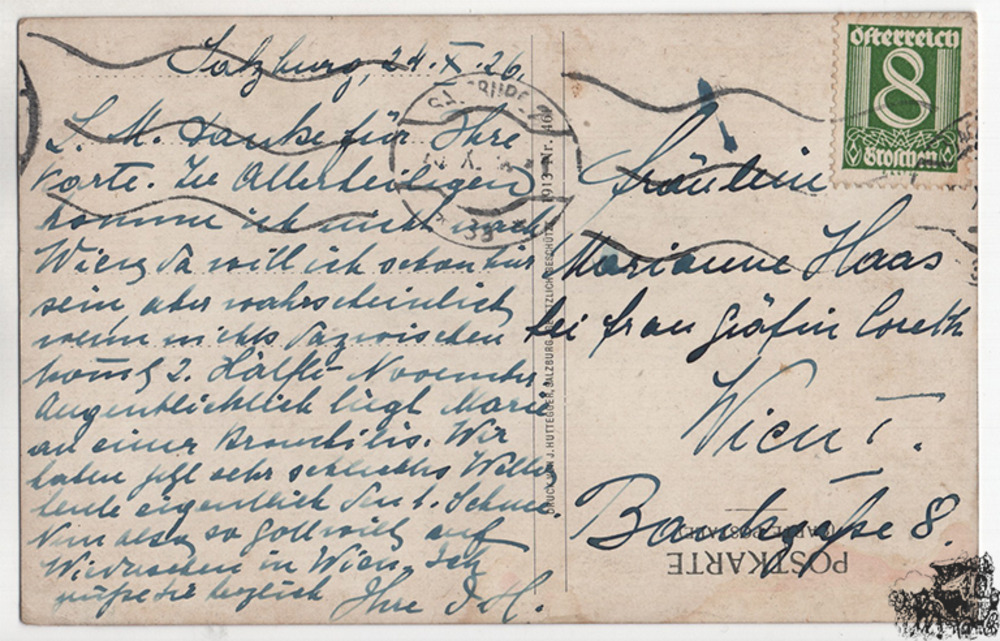 Salzburg, 24. X. 26.
L. M. danke für Ihre
Karte. Zu Allerheiligen
komme ich nicht nach
Wien, da will ich schon hier
sein, aber wahrscheinlich
wenn nichts dazwischen
kom̄t 2. Hälfte November
Augenblicklich liegt Marie
an einer Bronchitis. Wir
haben jetzt sehr schlechtes Wetter
heute eigentlich den 1. Schnee.
Nun also so Gott will auf
Wiedersehen in Wien. Ich
grüße Sie herzlich Ihre
SALZBURG
DRUCK VON J. HUTTEGGER, SALZBURG. GESETZLICH GESCHÜTZT. 1913 Nr. 46
österreich
8
Groschen
Fräulein
Marianne Haas
bei Frau Gräfin Coreth
Wien I.
Bankgasse 8.
POSTKARTE